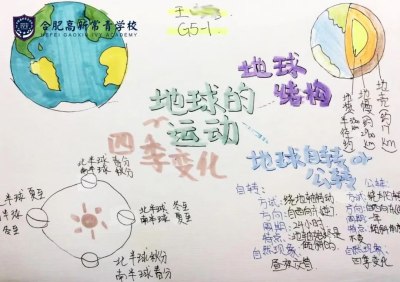 合肥高新常青学校
HEFEI GAOXIN IVY ACADEMY
G5-1
地球
结构
地球的
运动
四季变化
地球自转
公转
地壳约17km
自转:
公转:
方式:绕地轴转动
方向:自西向东
方向:自西向东
周期:24小时
周期:一年
特点:地轴始终是倾斜的
特点:
自然现象:
昼夜交替
自然现象:
四季变化
北半球 春分
南半球 秋分
北半球 冬至
南半球 夏至
夏至
冬至
北半球 秋分
南半球 春分